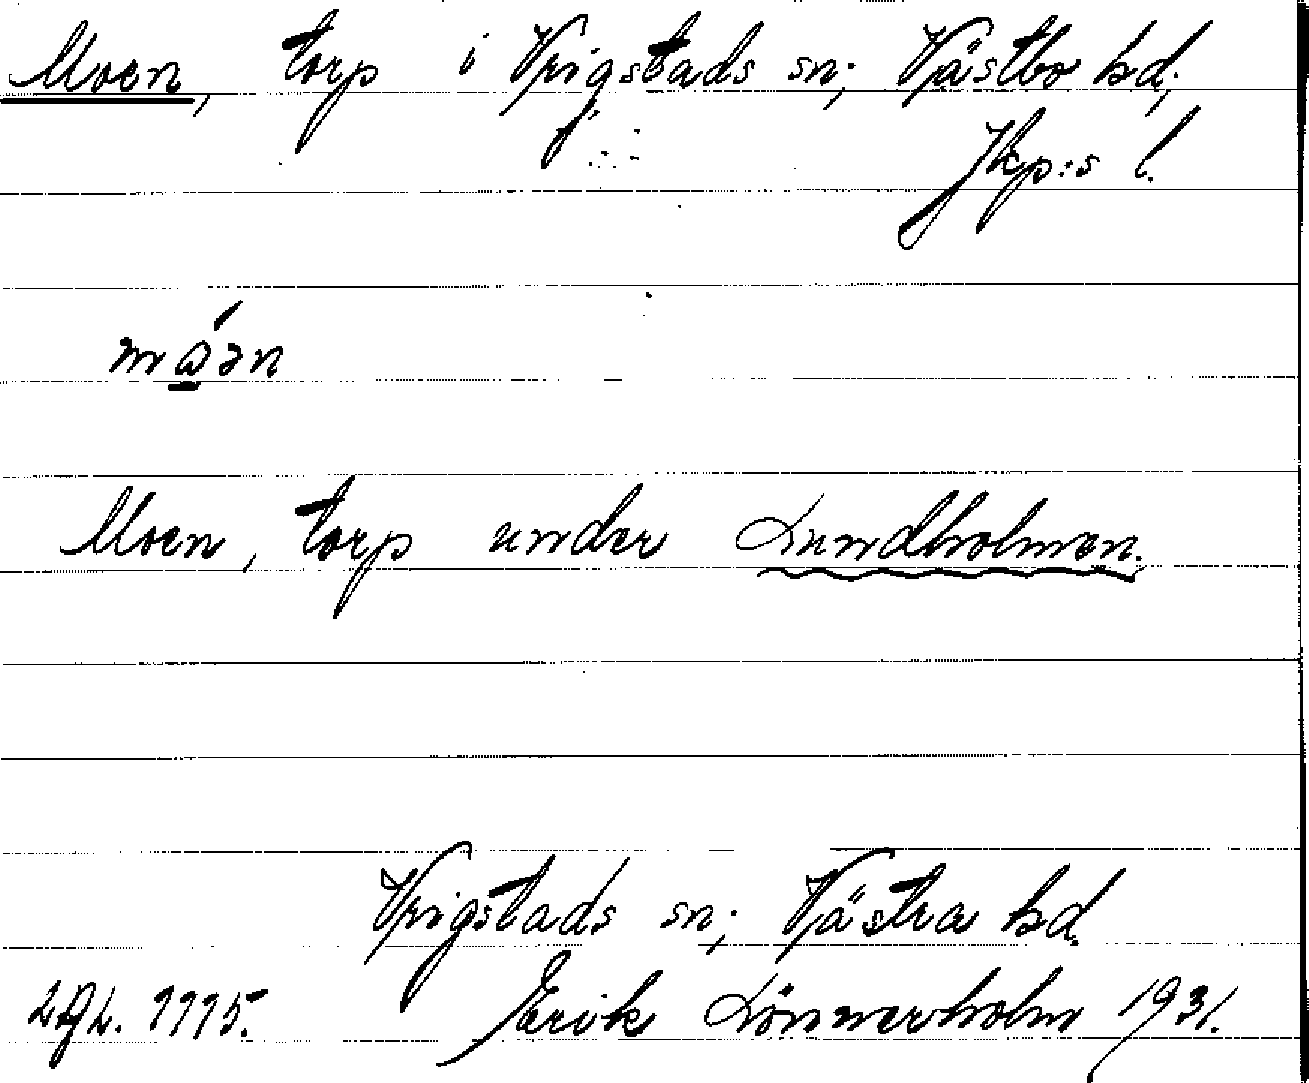 Moen, torp i Vrigstads sn; Västbo hd;
Jkp:s l.
Moen, torp under Lundholmen.
Vrigstads sn; Västra hd.
Erik Lönnerholm 1931.